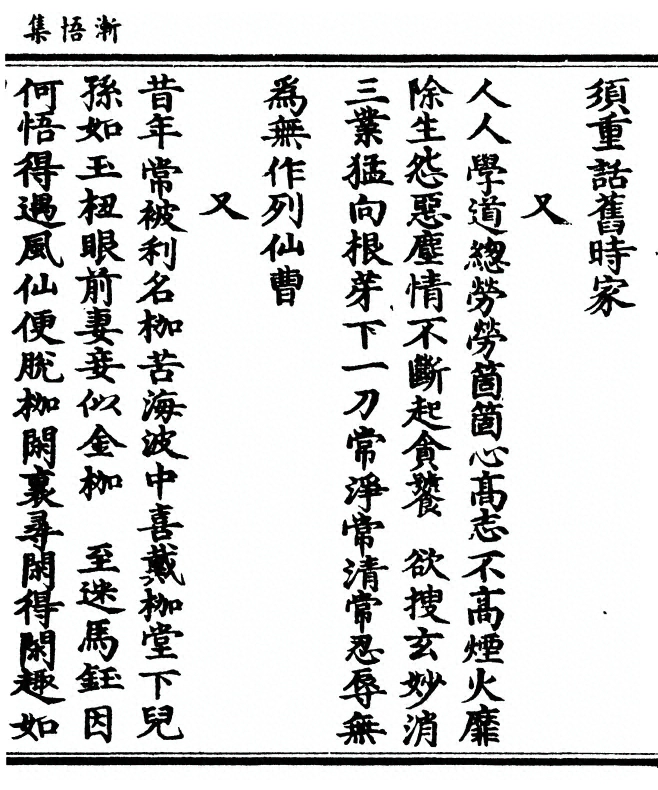 漸悟集
須重話舊時家
又
人人學道總勞勞箇箇心高志不高煙火靡
除生怨惡塵情不斷起貪饕 欲搜玄妙消
三業猛向根芽下一刀常淨常清常忍辱無
爲無作列仙曹
又
昔年常被利名枷苦海波中喜戴枷堂下兒
孫如玉杻眼前妻妾似金枷 至迷馬鈺因
何悟得遇風仙便脫枷閑裏尋閑得閑趣如